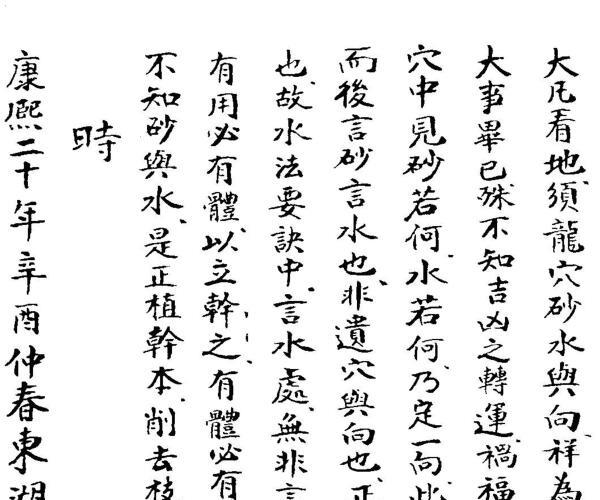 大凡看地須龍穴砂水與向祥為
大事畢已殊不知吉凶之轉運禍福
穴中見砂若何水若何乃定一向此
而後言砂言水也非遺穴與向也正
也故水法要訣中言水處無非言
有用必有體以立幹之有體必有
不知砂與水是正植幹本削去枝
時
康熙二十年辛酉仲春東湖